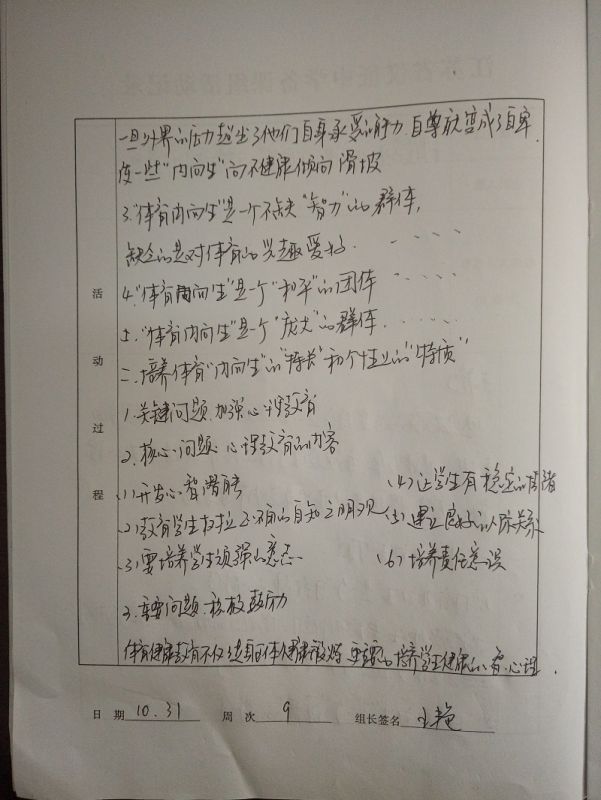 一旦外界的压力超出了他们自身承受的能力,自尊就变成了自卑.
使一些"内向生"向不健康倾向滑坡
3."体育内向生"是一个不缺"智力"的群体,
缺乏的是对体育的兴趣爱好.
4."体育内向生"是一个"和平"的团体
5."体育内向生"是一个"庞大"的群体.
二.培养体育"内向生"的"特长"和个性上的"特质"
1.关键问题,加强心理教育
2.核心问题:心理教育的内容
(1)开发心智潜能
(4)让学生有稳定的情绪
(2)教育学生树立正确的自知之明观
(5)建立良好的人际关系
(3)要培养学生顽强的意志
(6)培养责任意识
3.主要问题:积极鼓励
体育健康教育不仅是身体健康锻炼,更重要的培养学生健康的心理.
活动过程
日 期 10.31 周 次 9 组长签名 王艳